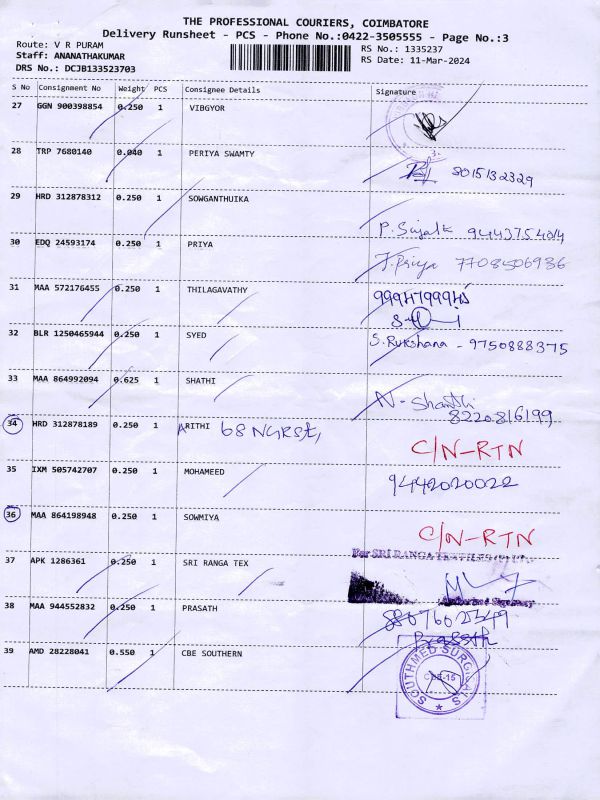 THE PROFESSIONAL COURIERS, COIMBATORE
Delivery Runsheet - PCS - Phone No.:0422-3505555 - Page No.:3
Route: V R PURAM
Staff: ANANATHAKUMAR
DRS No.: DCJB133523703
RS No.: 1335237
RS Date: 11-Mar-2024
S No Consignment No Weight PCS Consignee Details Signature
27 GGN 900398854 0.250 1 VIBGYOR
28 TRP 7680140 0.040 1 PERIYA SWAMTY
8015132329
29 HRD 312878312 0.250 1 SOWGANTHUIKA
P. Sujatk 9443754014
30 EDQ 24593174 0.250 1 PRIYA
J. Priya 7708506936
31 MAA 572176455 0.250 1 THILAGAVATHY
32 BLR 1250465944 0.250 1 SYED
S. Rukshana - 9750888375
33 MAA 864992094 0.625 1 SHATHI
N - Shanthi
8220816199
34 HRD 312878189 0.250 1 ARITHI 68 NGR St,
C/N-RTN
35 IXM 505742707 0.250 1 MOHAMEED
9442020022
36 MAA 864198948 0.250 1 SOWMIYA
C/N-RTN
37 APK 1286361 0.250 1 SRI RANGA TEX
For SRI RANGA
38 MAA 944552832 0.250 1 PRASATH
8807602349
Prasath
39 AMD 28228041 0.550 1 CBE SOUTHERN
SOUTHMED SURGICALS
CBE-15